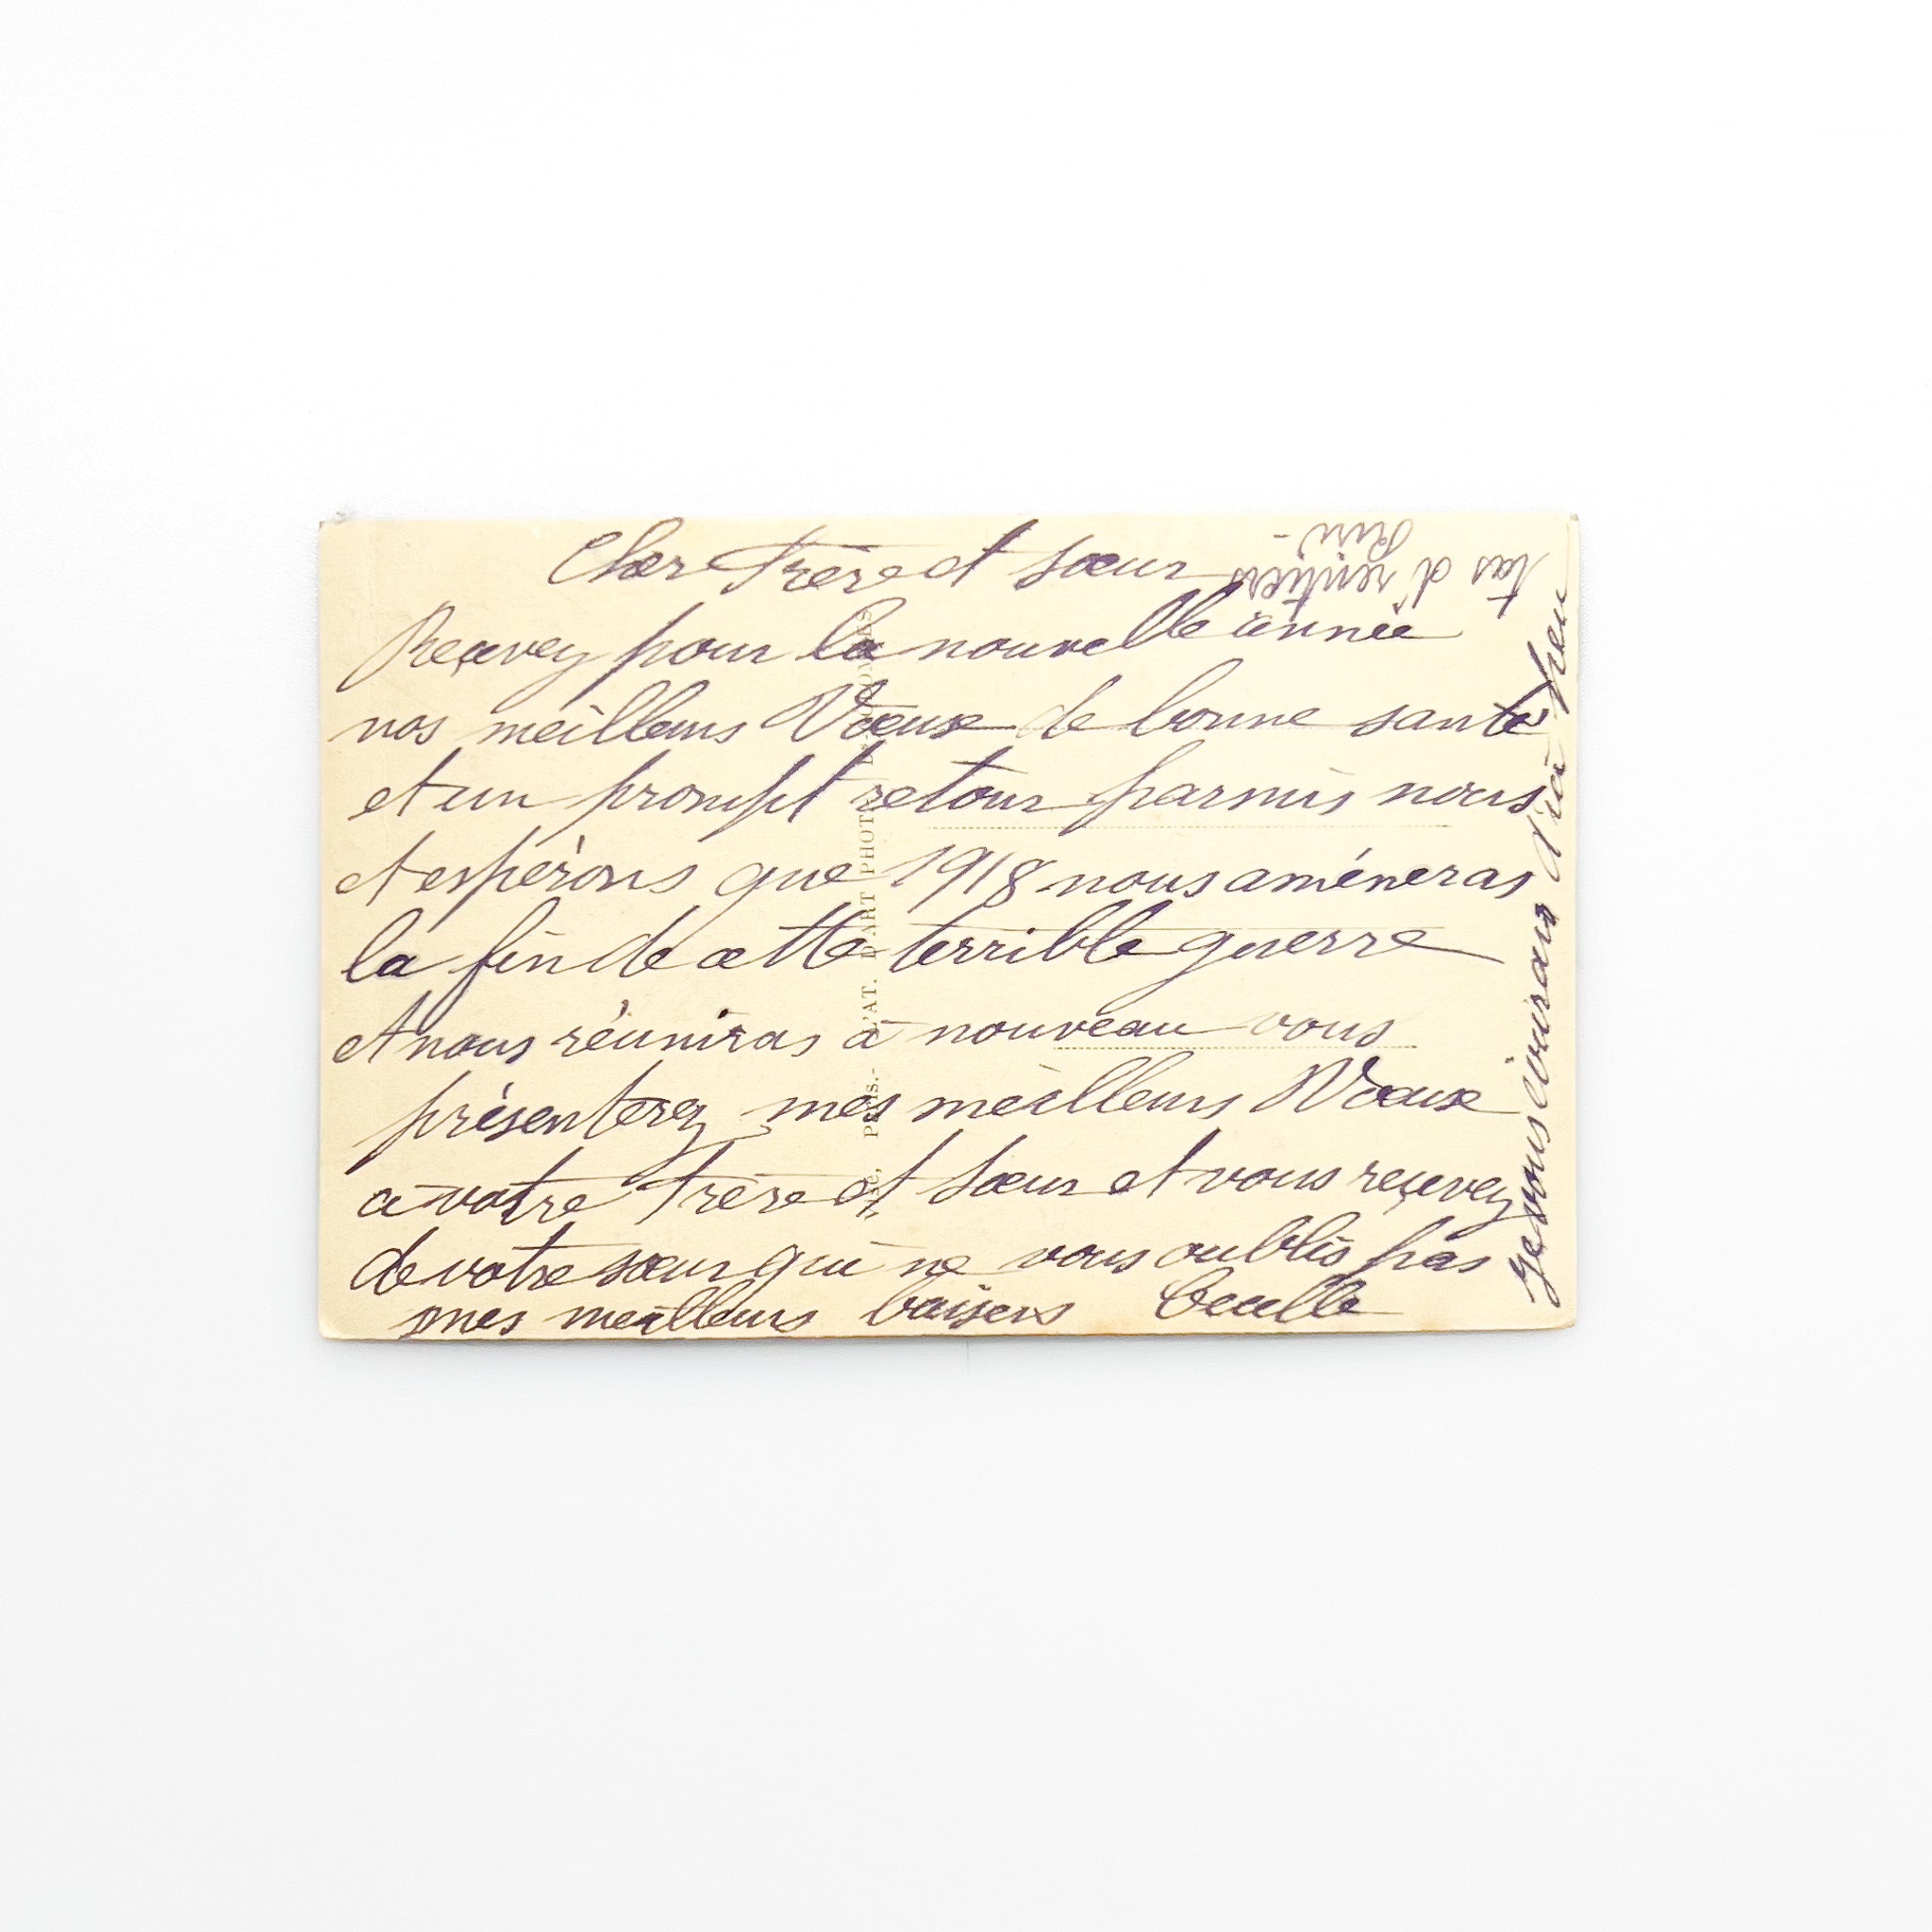 Cher Frère et Sœur
Reçevez pour la nouvelle année
nos meilleurs Vœux de bonne santé
et un prompt retour parmis nous
et espèrons que 1918 nous améneras
la fin de cette terrible guerre
et nous réuniras à nouveau vous
présenterez mes meilleurs Vœux
a votre Frère et Sœur et vous reçevez
de votre sœur qui ne vous oublis pas
mes meilleurs baisers Cecelle
Je vous écrirais d'ici peu
PHOT
D'ART
L'AT.